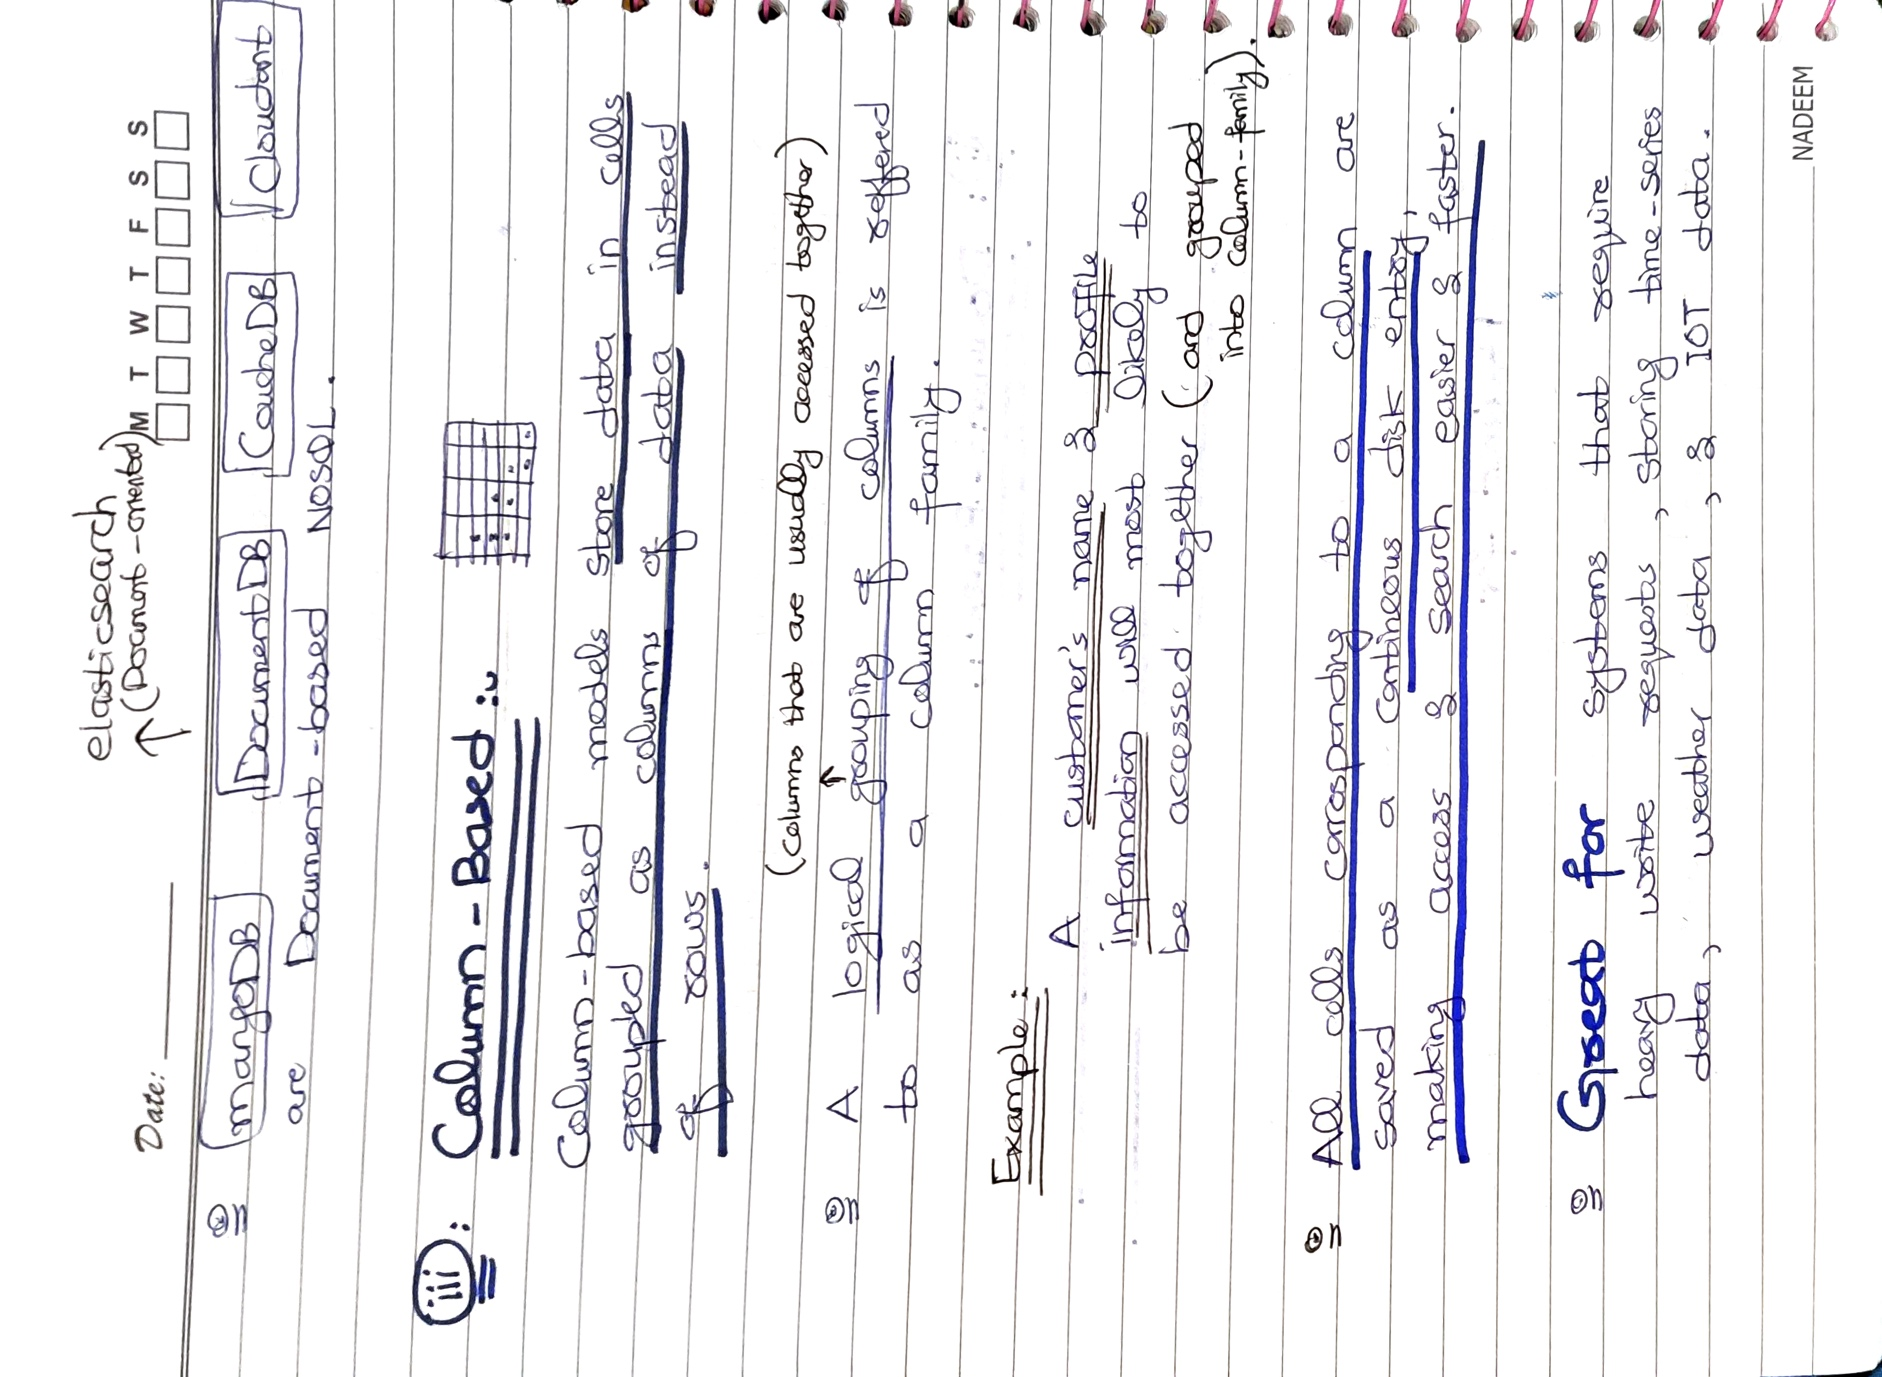 elasticsearch
↑ (Document-oriented)
Date:
M T W T F S S
mongoDB DocumentDB CoucheDB Cloudant
are Document-based NOSQL.
iii: Column-Based :
Column-based models store data in cells
grouped as columns of data instead
of rows.
(columns that are usually accessed together)
A logical grouping of columns is reffered
to as a column family.
Example:
A customer's name & profile
information will most likely to
be accessed together (and grouped
into column-family).
All cells carosponding to a column are
saved as a contineous disk entry,
making access & search easier & faster.
Great for systems that require
heavy write requests, storing time-series
data, weather data, & IOT data.
NADEEM